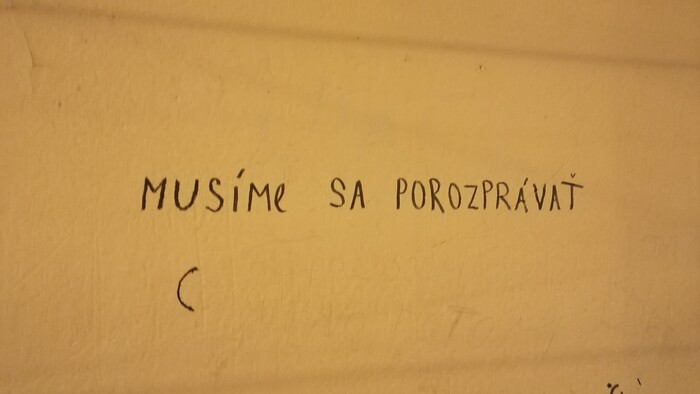 MUSÍMe SA POROZPRÁVAŤ
(